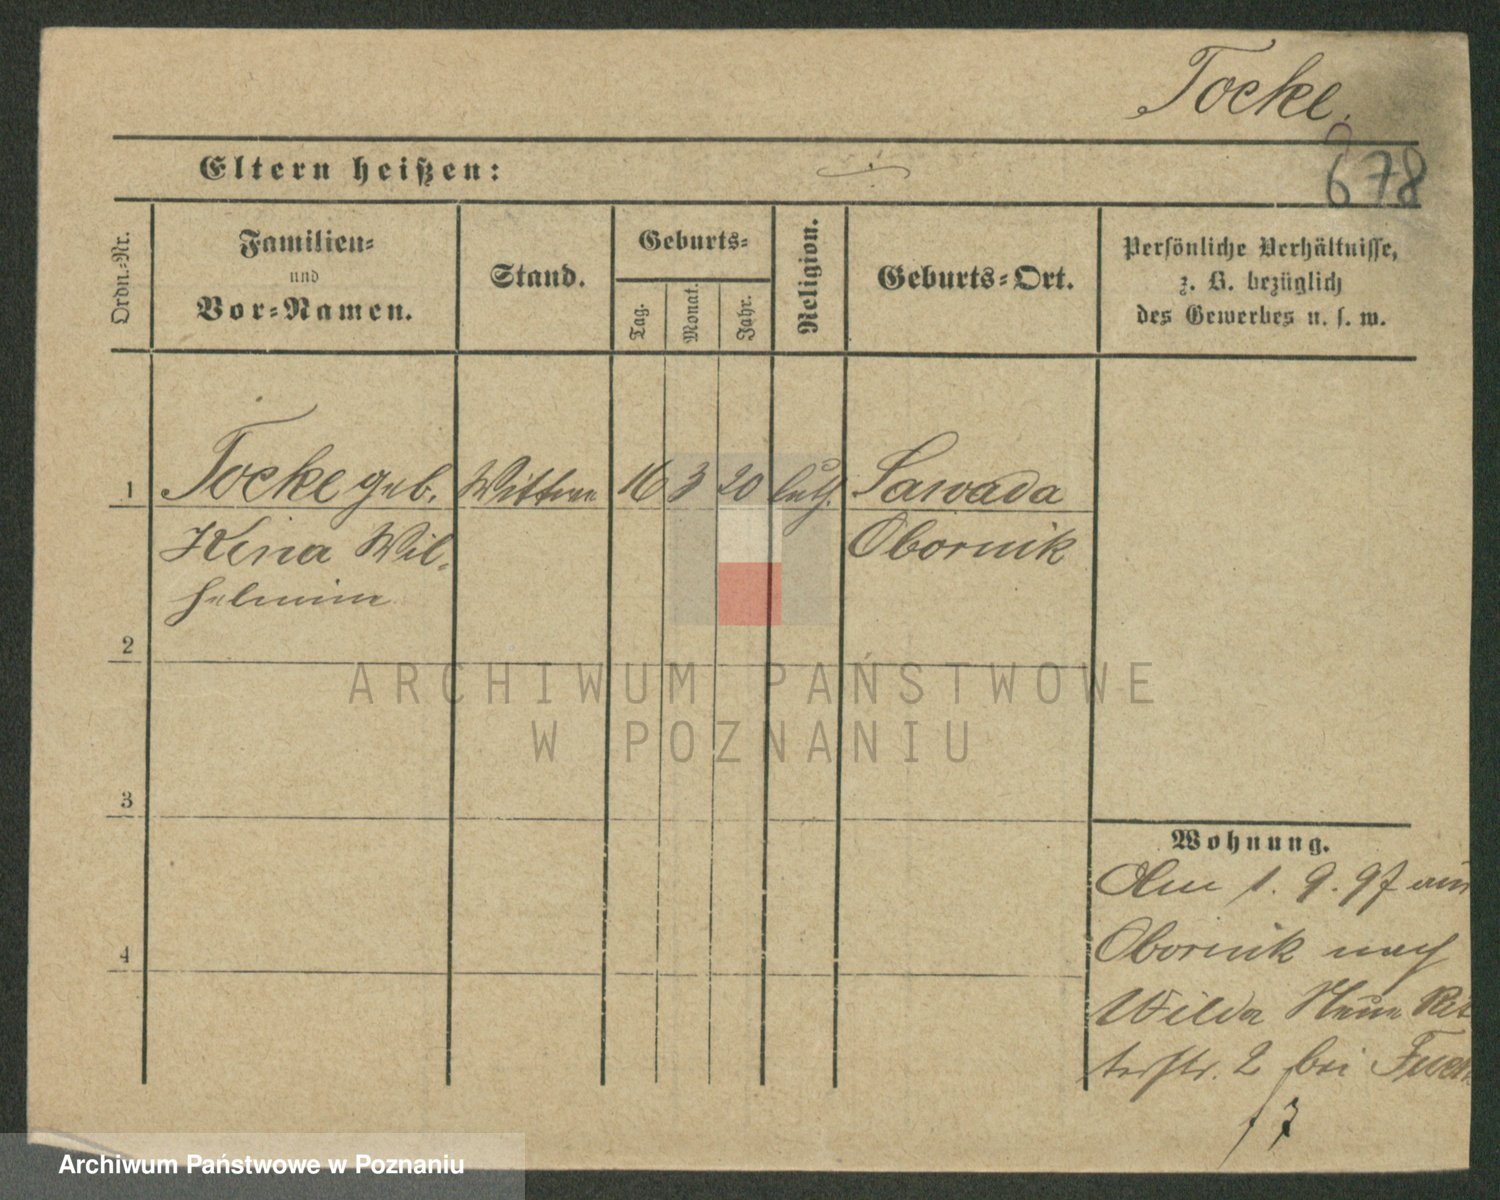 Tocke.
678
Eltern heißen:
Ordn.-Nr.
Familien-
und
Vor-Namen.
Stand.
Geburts-
Tag.
Monat.
Jahr.
Religion.
Geburts-Ort.
Persönliche Verhältnisse,
z. B. bezüglich
des Gewerbes u. s. w.
1 Tocke geb. Wittwe 16 3 20 luth. Sawada
Kina Wil- Obornik
helmine
2
3
4
Wohnung.
Am 1. 9. 97 aus
Obornik nach
Wilda Neue Rit
terstr. 2 bei
ARCHIWUM PAŃSTWOWE
W POZNANIU
Archiwum Państwowe w Poznaniu